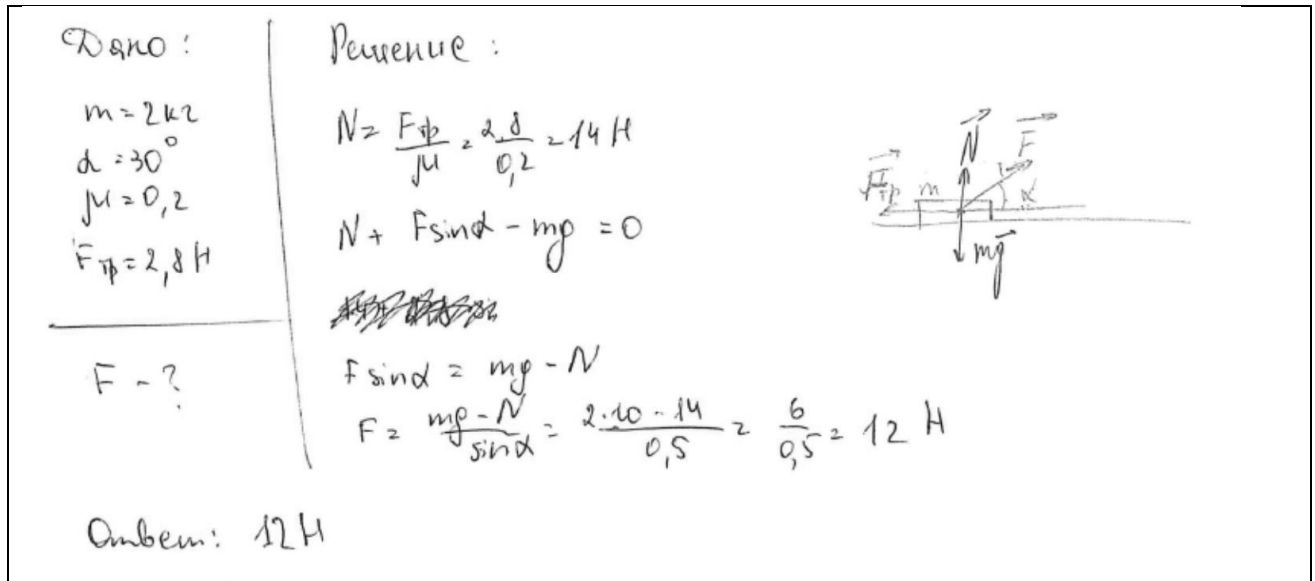 Дано:
m = 2 кг
α = 30°
μ = 0,2
Fтр = 2,8 Н
F - ?
Решение:
N = Fтр/μ = 2,8/0,2 = 14 Н
N + F sinα - mg = 0
F sinα = mg - N
F = (mg - N)/sinα = (2·10 - 14)/0,5 = 6/0,5 = 12 Н
N F
Fтр m α
mg
Ответ: 12 Н